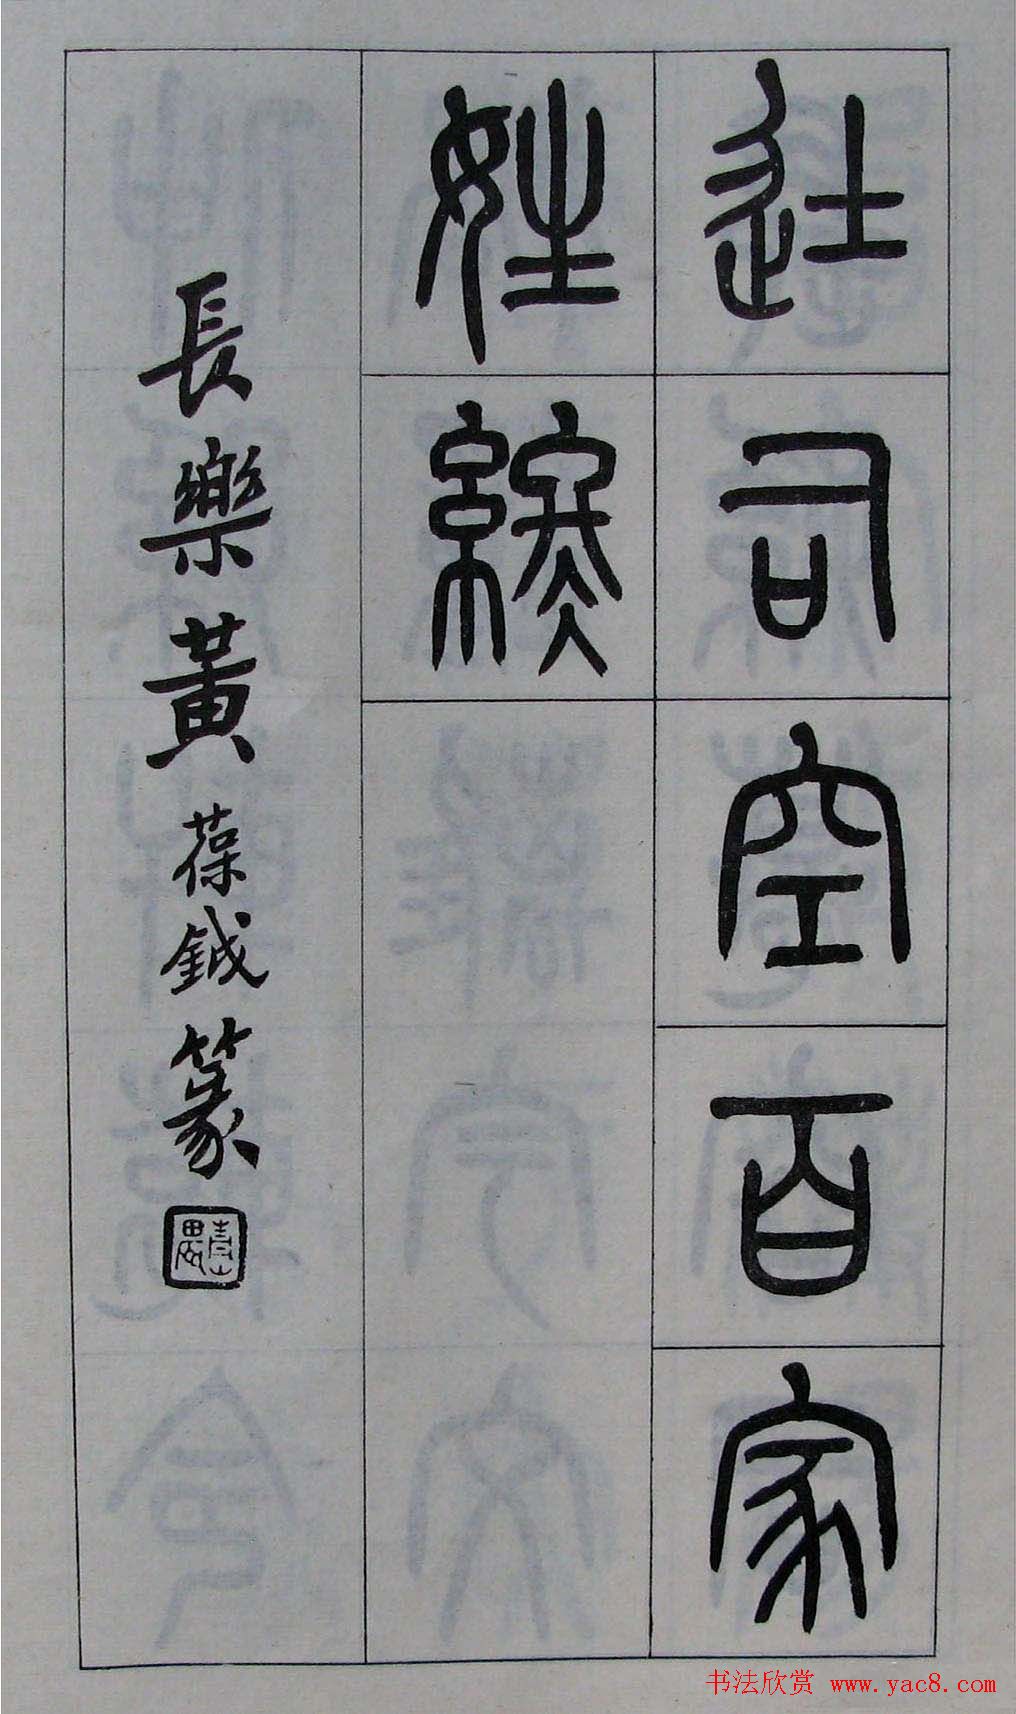 徒司空百家
姓終
長樂黃葆鉞篆
青山農
书法欣赏 www.yac8.com